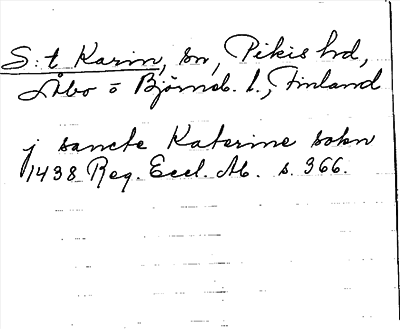 S:t Karin, sn, Pikis hd,
Åbo o Björneb. l., Finland
j sancte Katerine sokn
1438 Reg. Eccl. Ab. s. 366.